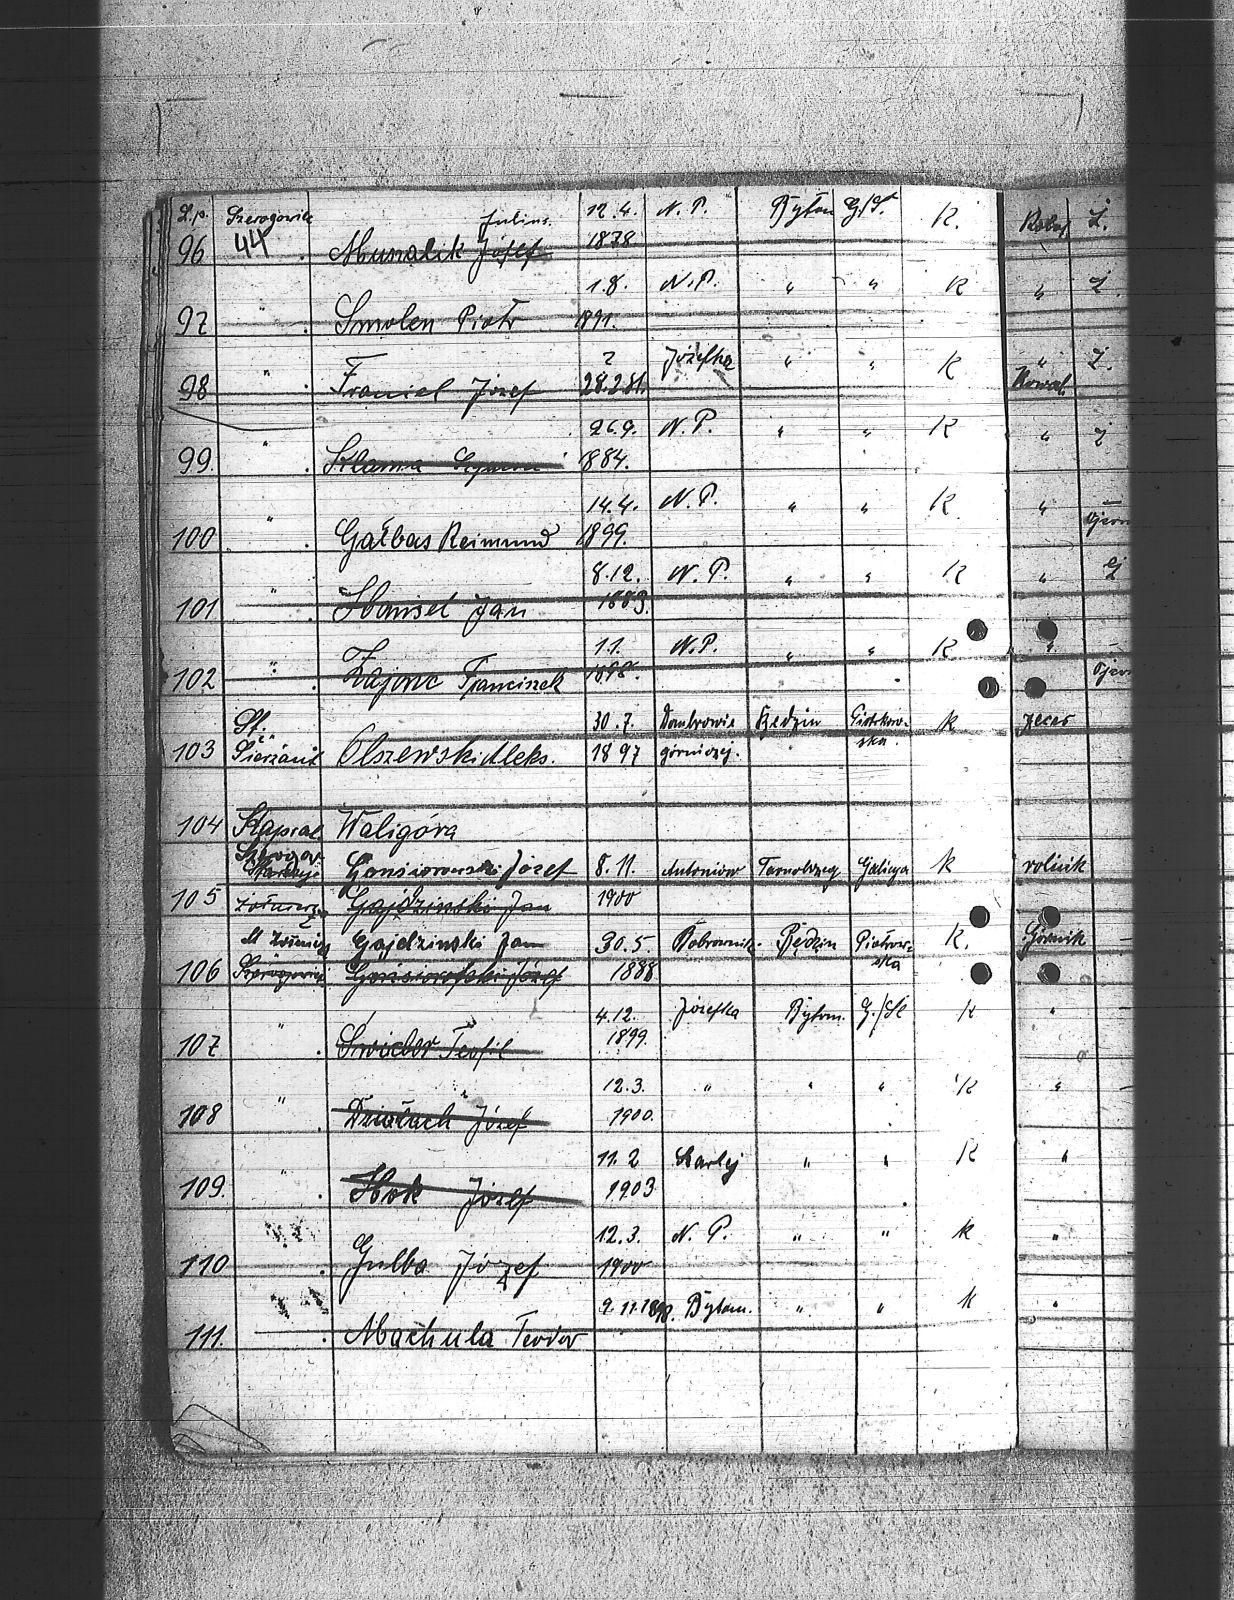 L.p. Szeregowiec Julius. 12.4. N.P. Bytom G./Sl. K. Robot. Ż.
96 44 Musialik Józef 1878
1.8. N.P. " " K " Ż.
97 " Smolen Piotr 1891.
? Józefka " " K " Ż.
98 " Franiel Józef 28.2.81. Kowal.
" 26.9. N.P. " " K "
99. Szymon 1884.
" 14.4. N.P. " " K "
100. Gałbas Reimund 1899.
" 8.12. N.P. " " K "
101 Hansel Jan 1889.
" 1.1. N.P. " " K "
102 Zajonc Franciszek 1898.
St. 30.7. Dombrowie Będzin Piotrkow- K zecer
103 Sierżant Olszewski Aleks. 1897 górniczej. ska.
104 Kapral Waligóra
Gonsiorowski Józef 8.11. Antoniów Tarnobrzeg Galicya K rolnik
105 Gajdzinski Jan 1900
Gajdzinski Jan 30.5. Bobrownik. Będzin Piotrkow- K. Górnik
106 Gonsiorowski Józef 1888 ska
" 4.12. Józefka Bytom. G./Sl K "
107 Świeder Teofil 1899.
" 12.3. " " " K "
108 Dziołach Józef 1900.
" 11.2 Szarlej " " K "
109. Hok Józef 1903
12.3. N.P. " " K "
110 Gulba Józef 1900
9.11.1898. Bytom. " " K "
111. Machula Teodor